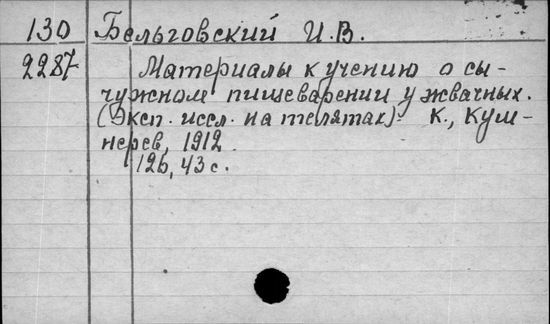 130 Бельговский И.В.
2287 Материалы к учению о сы-
чужном пищеварении у жвачных.
(Эксп. иссл. на телятах). К., Куш-
нерев, 1912.
126, 43 с.